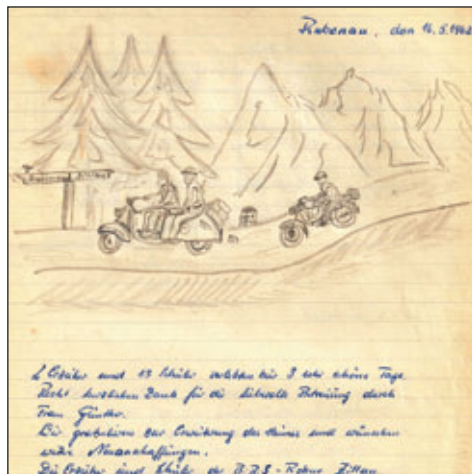 Rabenau, den 16.5.1962
2 Erzieher und 13 Schüler erlebten hier 3 sehr schöne Tage.
Recht herzlichen Dank für die liebevolle Betreuung durch
Frau Günther.
Wir gratulieren zur Erweiterung des Heimes und wünschen
viele Neuanschaffungen.
Die Erzieher und Schüler der B.B.S - Robur Zittau